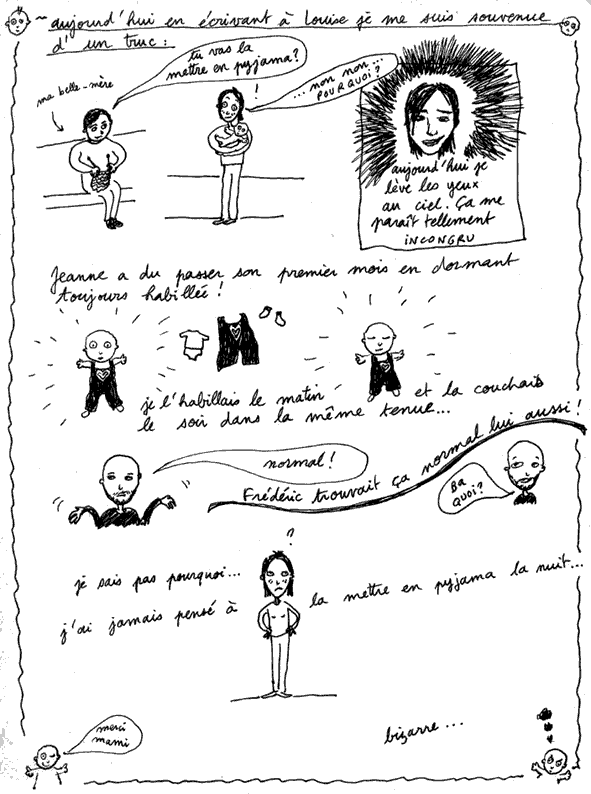 ~ aujourd'hui en écrivant à Louise je me suis souvenue
d'un truc :
tu vas la
mettre en pyjama?
... non non ...
POURQUOI?
!
ma belle-mère
aujourd'hui je
lève les yeux
au ciel. Ça me
paraît tellement
INCONGRU
Jeanne a du passer son premier mois en dormant
toujours habillée !
je l'habillais le matin et la couchais
le soir dans la même tenue...
normal !
Frédéric trouvait ça normal lui aussi !
BA
QUOI?
?
je sais pas pourquoi...
j'ai jamais pensé à la mettre en pyjama la nuit...
bizarre ...
merci
mami